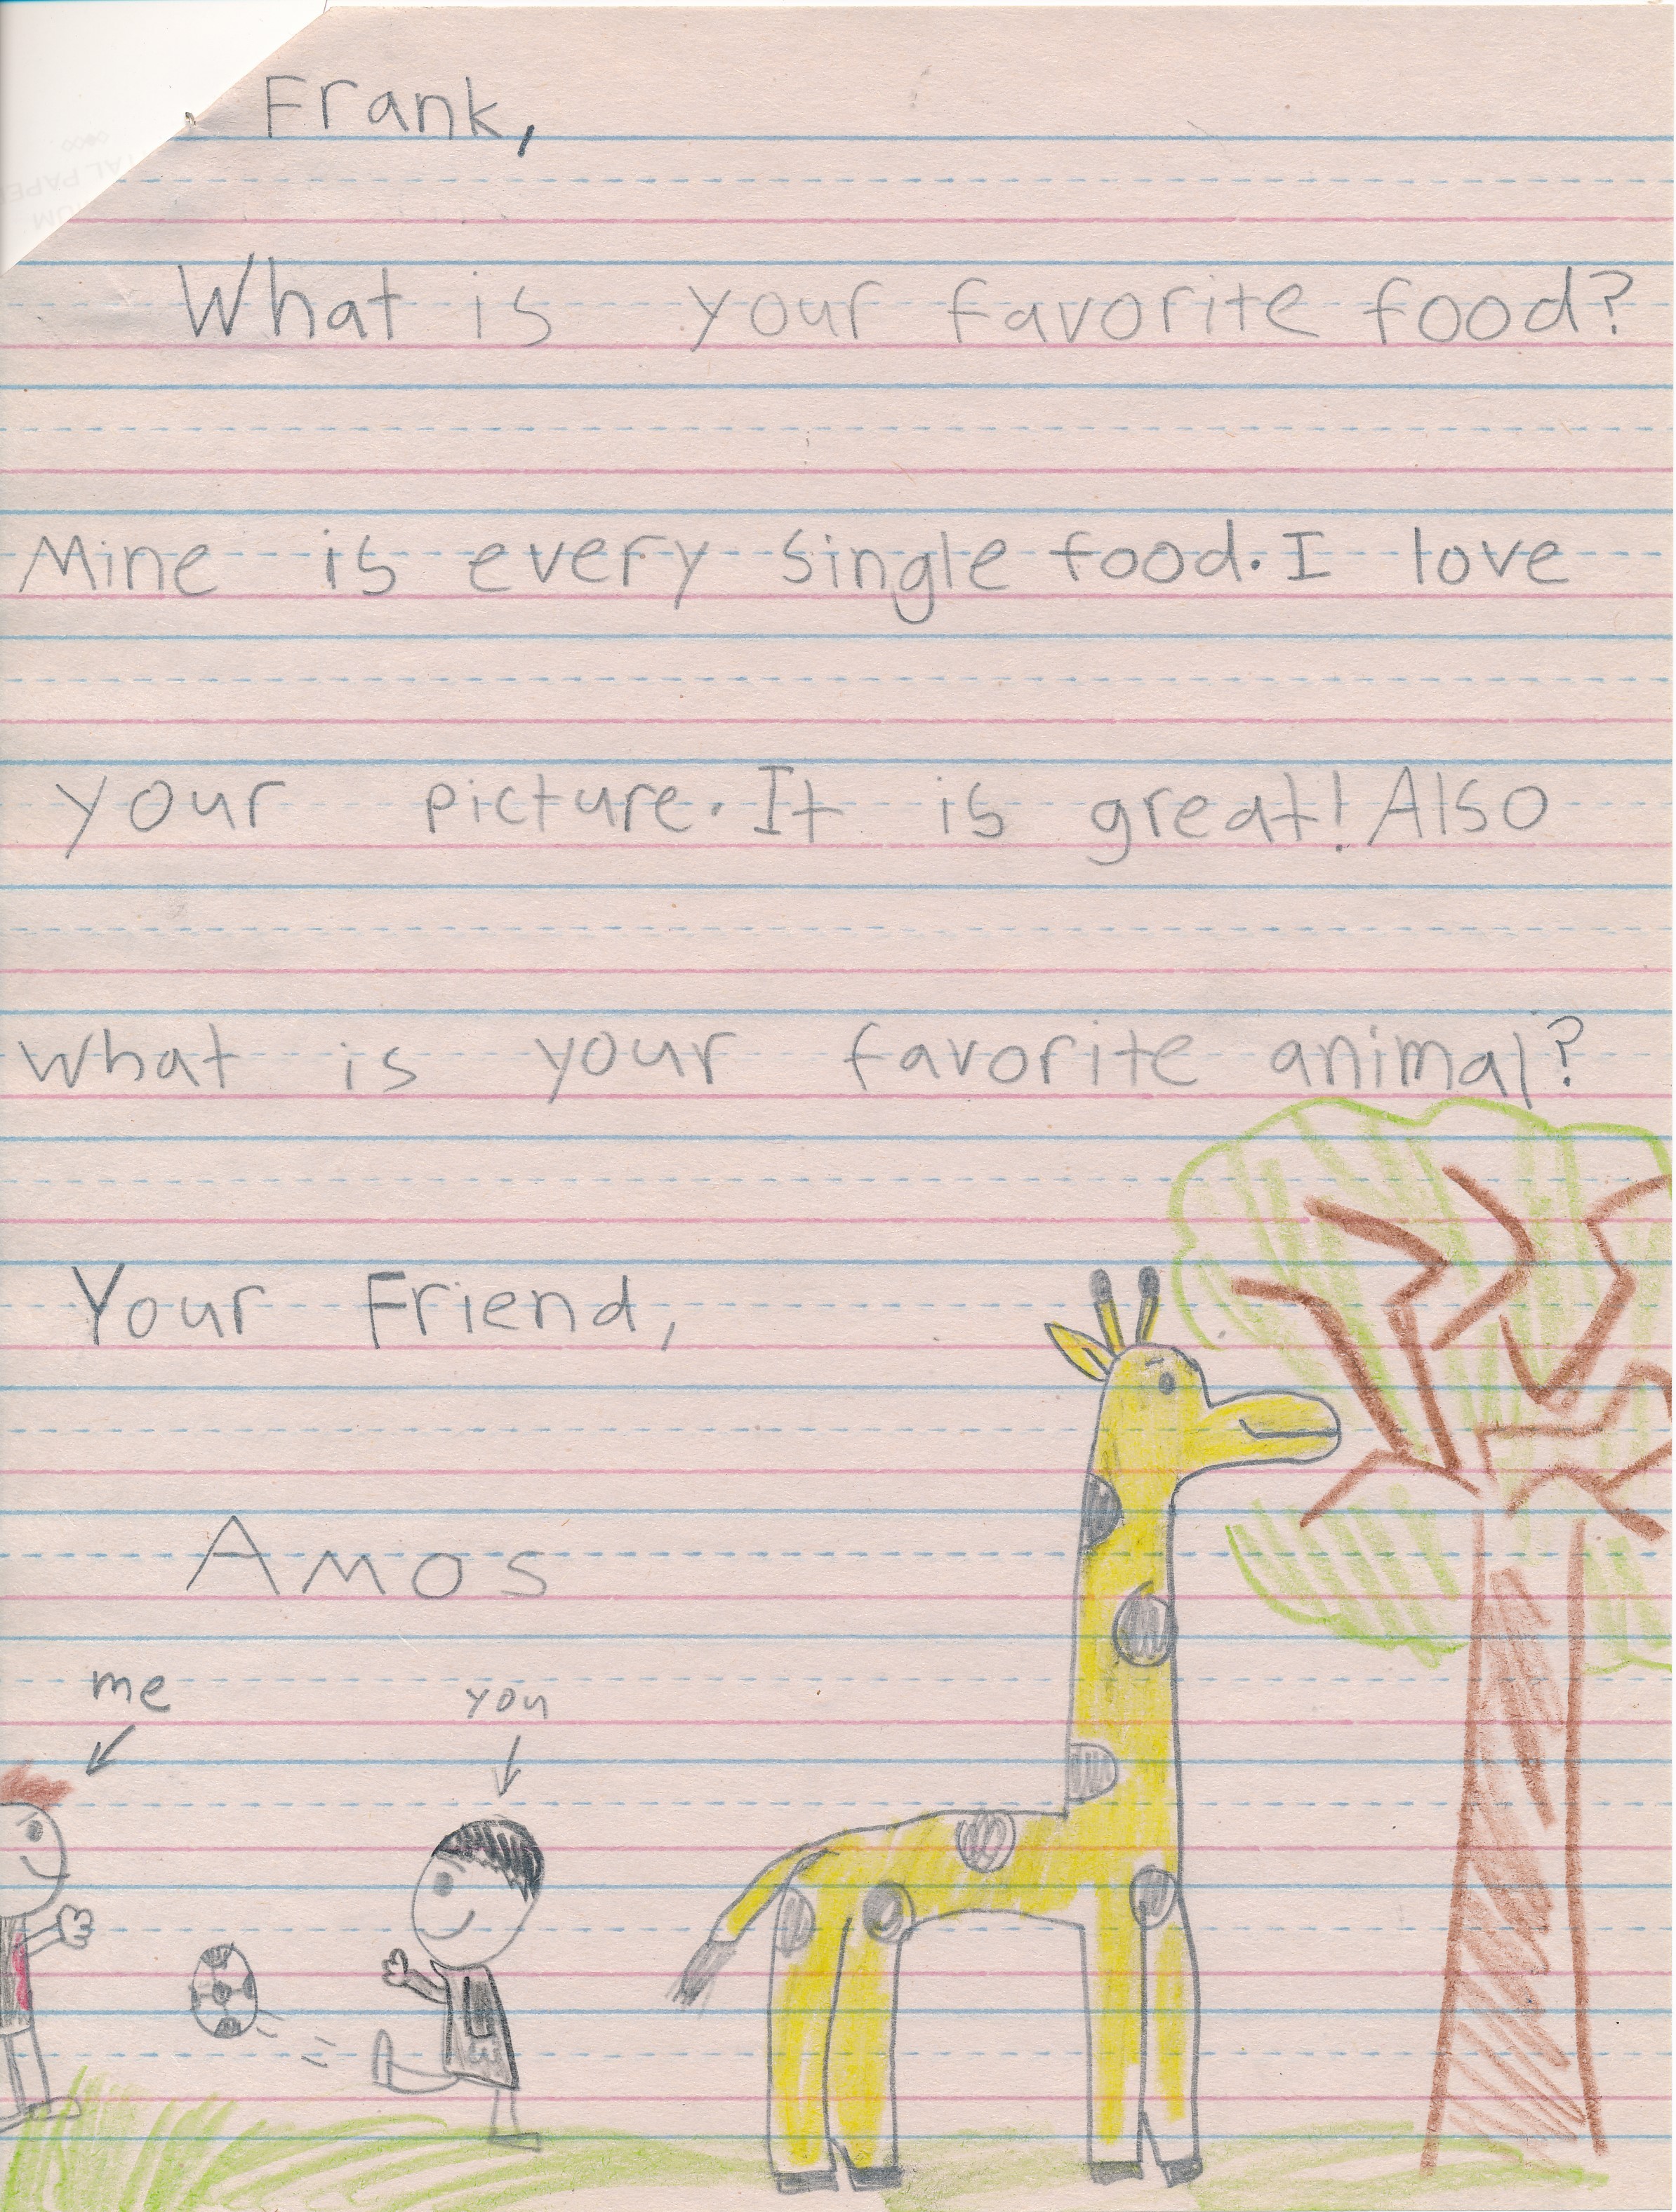 Frank,
What is your favorite food?
Mine is every single food. I love
your picture. It is great! Also
what is your favorite animal?
Your Friend,
Amos
me
you